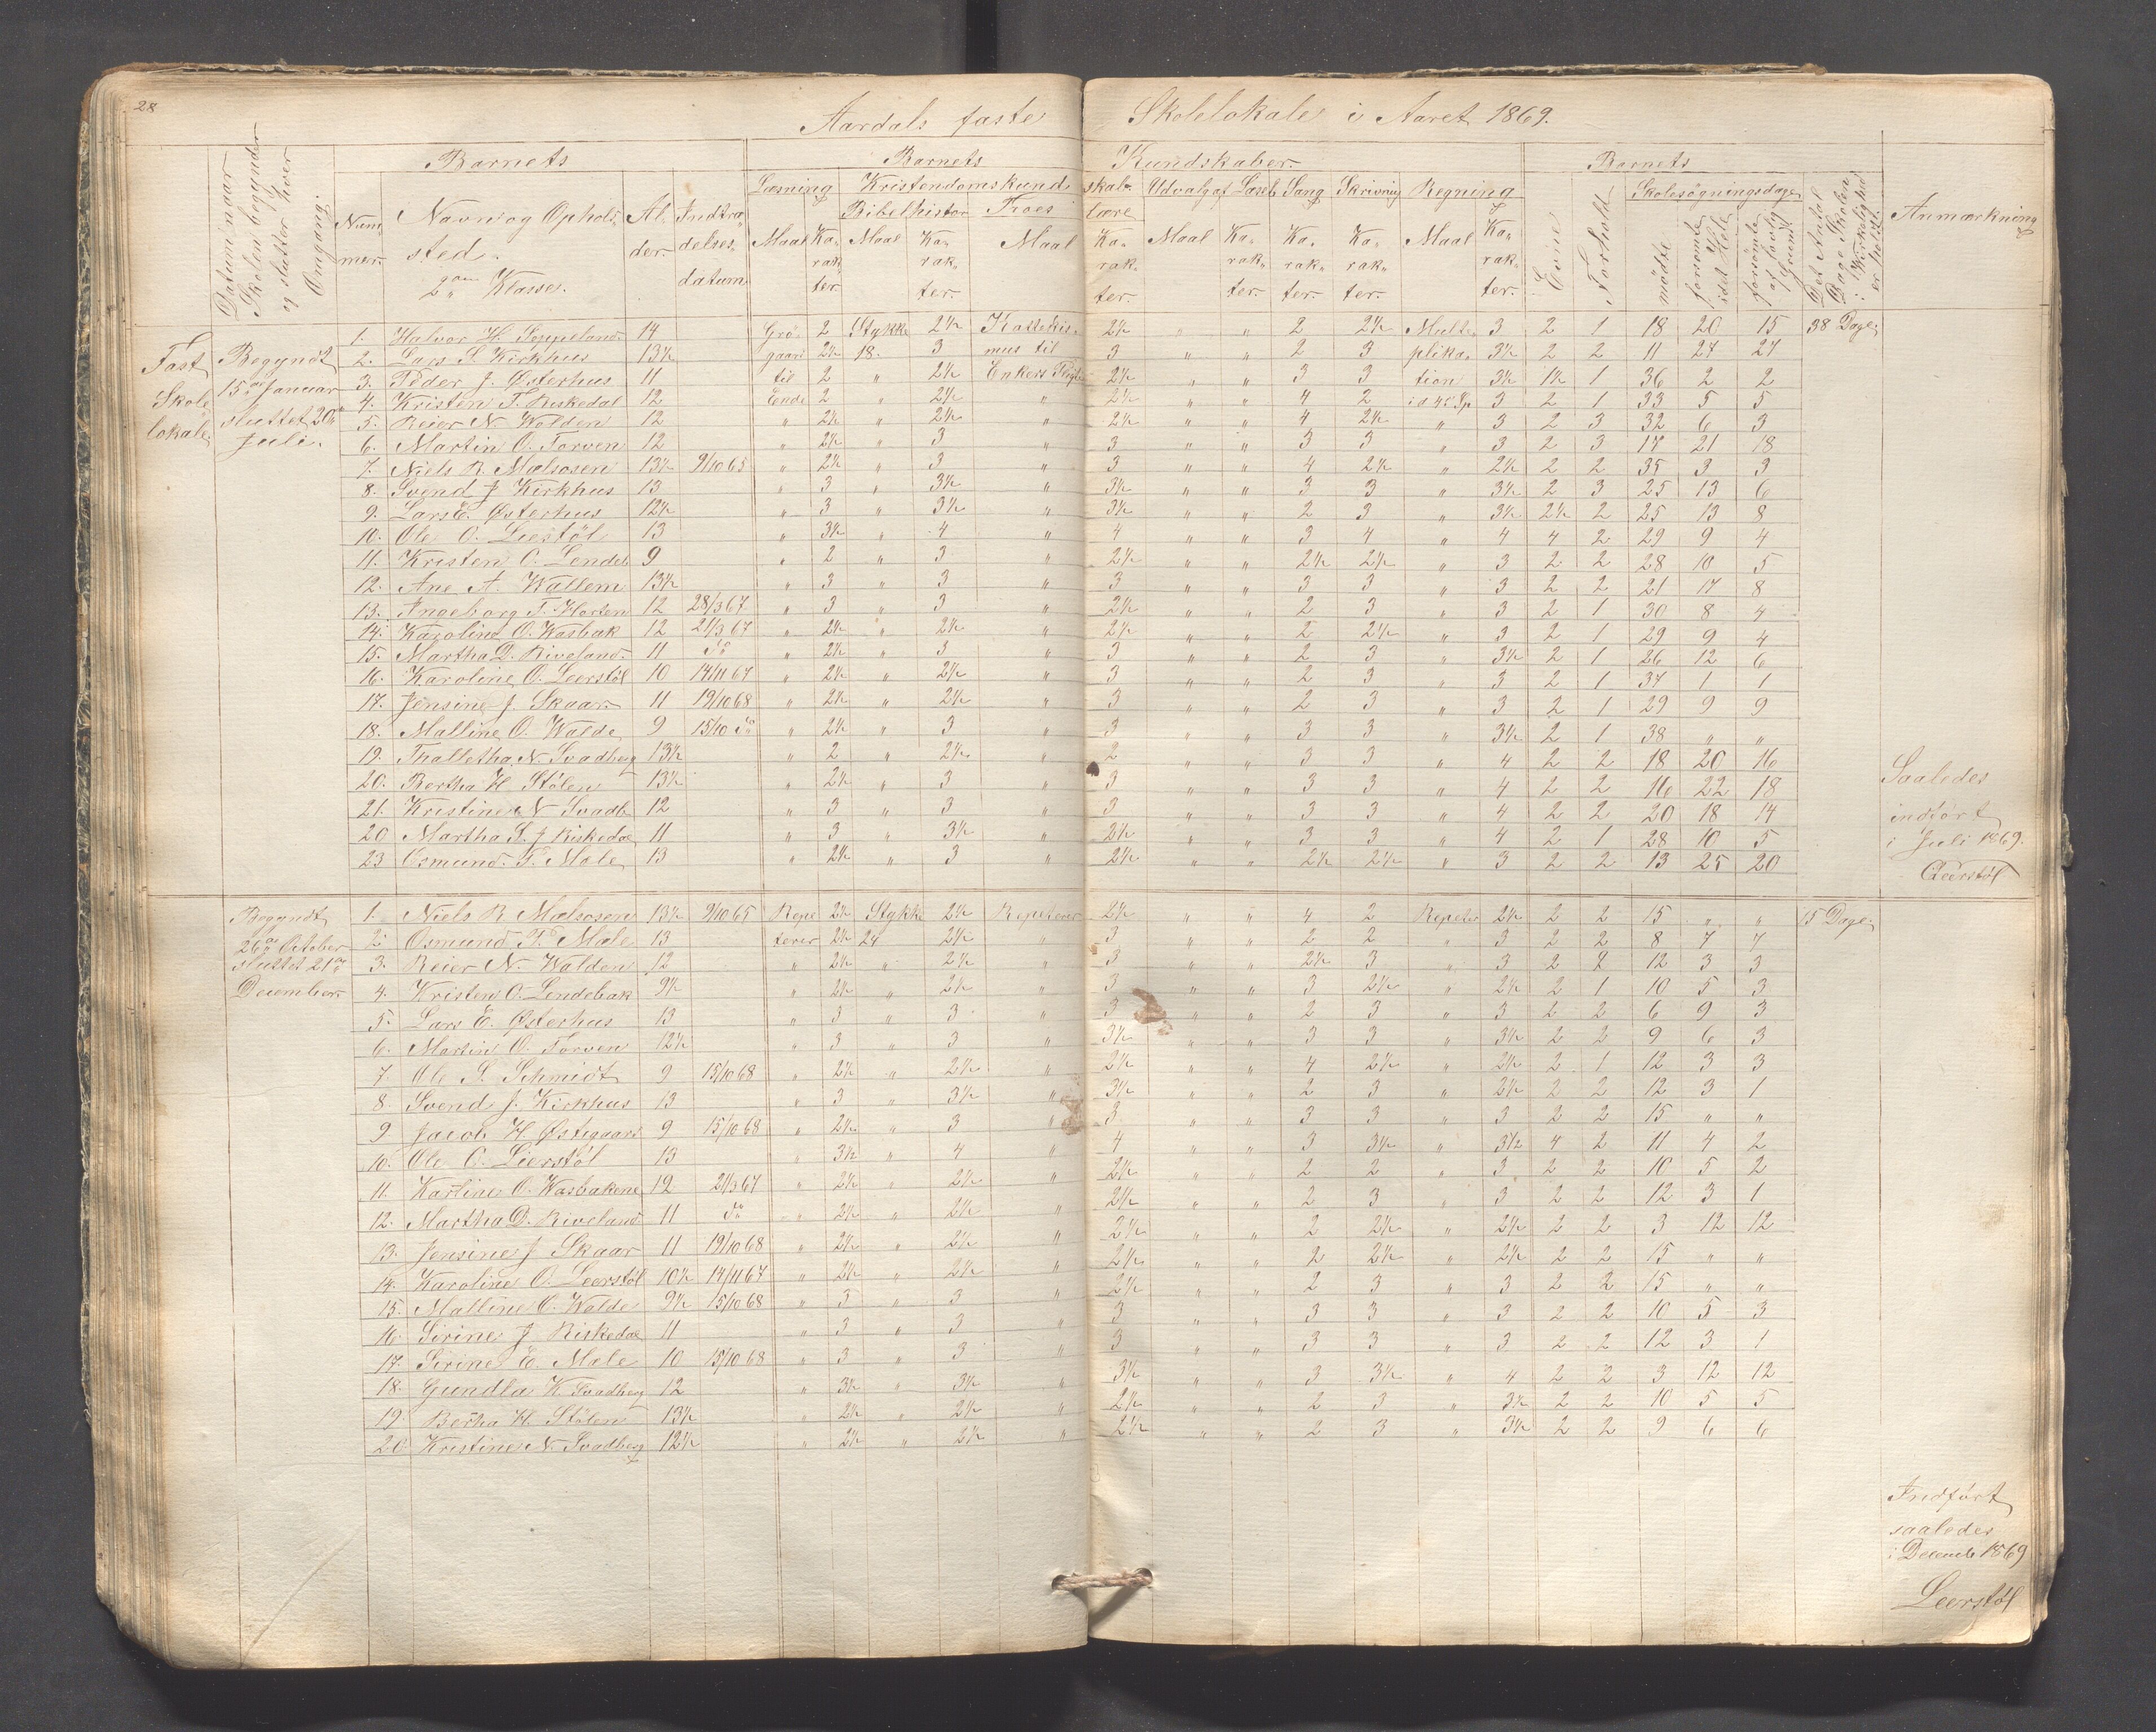 28
Aardals faste Skolelokale i Aaret 1869.
Datum naar Skolen begynder og slutter hver Omgang.
Barnets
Barnets Kundskaber.
Barnets
Anmærkning
Nummer. Navn og Opholdsted. 2den Klasse. Alder. Indtrædelsesdatum
Læsning Kristendomskundskab. Udvalg af Læseb. Sang Skrivning Regning
Bibelhistorie Troeslære
Maal Karakter. Maal Karakter. Maal Karakter. Maal Karakter. Karakter. Karakter. Maal Karakter.
Evne Forhold Skolesøgningsdage mødte forsømte i det Hele forsømte af lovlig Grund Det Antal Dage Skolen i Virkelighed er holdt.
Fast Skolelokale.
Begyndt 15de Januar sluttet 20de Juli.
1. Halvor H. 14 Gro- 2 Stykke 2½ Kattekis- 2½ " " 2 2½ Multi- 3 2 1 18 20 15 38 Dage.
2. Lars S. Kirkhus 13½ gaard 2½ 18. 3 mus til 3 " " 2 3 plika- 3½ 2 2 11 27 27
3. Peder J. Østerhus 11 til 2 " 2½ 2½ " " 3 3 tion 3½ 1½ 1 36 2 2
4. Kristen T. Riskedal 12 Ende 2 " 2½ " 2½ " " 4 2 3 2 1 33 5 5
5. Reier N. Walden 12 " 2½ " 2½ " 2½ " " 4 2½ " 3 2 3 32 6 3
6. Martin O. Torven 12 " 2½ " 3 " 3 " " 3 3 " 3 2 3 17 21 18
7. Niels R. Mælsosen 13½ 9/10 65 " 2½ " 3 " 3 " " 4 2½ " 2½ 2 2 35 3 3
8. Svend J Kirkhus 13 " 3 " 3½ " 3½ " " 3 3 " 3½ 2 3 25 13 6
9. Lars E. Østerhus 12½ " 3 " 3½ " 3½ " " 2 3 " 3½ 2½ 2 25 13 8
10. Ole O. Leerstøl 13 " 3½ " 4 " 4 " " 3 4 " 4 4 2 29 9 4
11. Kristen O. Lendeb 9 " 2 " 3 " 2½ " " 2½ 2½ " 3 2 2 28 10 5
12. Ane A. Wallem 13½ " 3 " 3 " 3 " " 3 3 " 3 2 2 21 17 8
13. Ingeborg T. Horten 12 28/3 67 " 3 " 3 " 2½ " " 2 3 " 3 2 1 30 8 4
14. Karoline O. Wasbak 12 21/3 67 " 2½ " 2½ " 2½ " " 2 2½ " 3 2 1 29 9 4
15. Martha D. Riveland. 11 do " 2½ " 3 " 3 " " 2 3 " 3½ 2 1 26 12 6
16. Karoline O. Leerstøl 10 14/11 67 " 2½ " 2½ " 3 " " 2 3 " 3 2 1 37 1 1
17. Jensine J. Skaar. 11 19/10 68 " 2½ " 2½ " 3 " " 2 3 " 3 2 1 29 9 9
18. Malline O. Walde 9 15/10 do " 2½ " 3 " 3 " " 3 3 " 3½ 2 1 38 " "
19. Thalletha N. Svadberg 13½ " 2 " 2½ " 2 " " 3 3 " 4 2 2 18 20 16
20. Bertha H Stølen 13½ " 2½ " 3 " 3 " " 3 3 " 4 2 2 16 22 18
21. Kristine N Svadb 12 " 3 " 3 " 3 " " 3 3 " 4 2 2 20 18 14
20 Martha S. J Riskedal 11 " 3 " 3½ " 2½ " " 3 3 " 4 2 1 28 10 5
23 Osmund. T. Mæle 13 " 2½ " 3 " 2½ " " 2½ 2½ " 3 2 2 13 25 20
Saaledes
indført
i Juli 1869.
Leerstøl
Begyndt 26de October sluttet 21de December.
1. Niels R Mælsosen 13½ 9/10 65 Repe- 2½ Stykke 2½ Repeterer 2½ " " 4 2 Repeter 2½ 2 2 15 " " 15 Dage.
2. Osmund T. Mæle 13 terer 2½ 24 2½ " 3 " " 2 2 " 3 2 2 8 7 7
3. Reier N. Walden 12 " 2½ " 2½ " 3 " " 2½ 3 " 3 2 2 12 3 3
4. Kristen O. Lendebak 9½ " 2½ " 2½ " 3 " " 3 2½ " 2½ 2 1 10 5 3
5. Lars E. Østerhus 13 " 3 " 3 " 3 " " 2 3 " 3 2 2 6 9 3
6. Martin O. Torven 12½ " 3 " 3 " 3½ " " 3 3 " 3½ 2 2 9 6 3
7. Ole S. Schmidt 9 15/10 68 " 2½ " 2½ " 2½ " " 4 2½ " 2½ 2 1 12 3 3
8. Svend J. Kirkhus 13 " 3 " 3½ " 3½ " " 2 3 " 2½ 2 2 12 3 1
9 Jacob H Østigaard 9 15/10 68 " 2½ " 3 " 3 " " 3 3 " 3 2 2 15 " "
10. Ole O. Lierstøl 13 " 3½ " 4 " 4 " " 3 3½ " 3½ 4 2 11 4 2
11. Karline O. Wasbakene 12 21/3 67 " 2½ " 2½ " 2½ " " 2 2 " 3 2 2 10 5 2
12. Martha D. Riveland 11 do " 2½ " 2½ " 2½ " " 2 3 " 3 2 2 12 3 1
13. Jensine J Skaar 11 19/10 68 " 2½ " 2½ " 2½ " " 2 2½ " 2½ 2 2 3 12 12
14. Karoline O. Leerstøl 10½ 14/11 67 " 2½ " 2½ " 2½ " " 2 2½ " 2½ 2 2 15 " "
15. Malline O. Walde 9½ 15/10 68 " 3 " 3 " 2½ " " 2 3 " 3 2 2 15 " "
16 Sirine J Riskedal 11 " 3 " 3 " 3 " " 3 3 " 3 2 2 10 5 3
17. Serine E. Mæle 10 15/10 68 " 3 " 3 " 3 " " 3 3 " 3 2 2 12 3 1
18. Gundla K Svadberg 12 " 3½ " 3½ " 3½ " " 3 3½ " 4 2 2 3 12 12
19 Bertha H. Stølen 13½ " 2½ " 2½ " 2½ " " 2 3 " 3½ 2 2 10 5 5
20 Kristine N. Svadberg 12½ " 2½ " 2½ " 2½ " " 2 3 " 3½ 2 2 9 6 6
Indført
saaledes
i Decemb 1869
Leerstøl